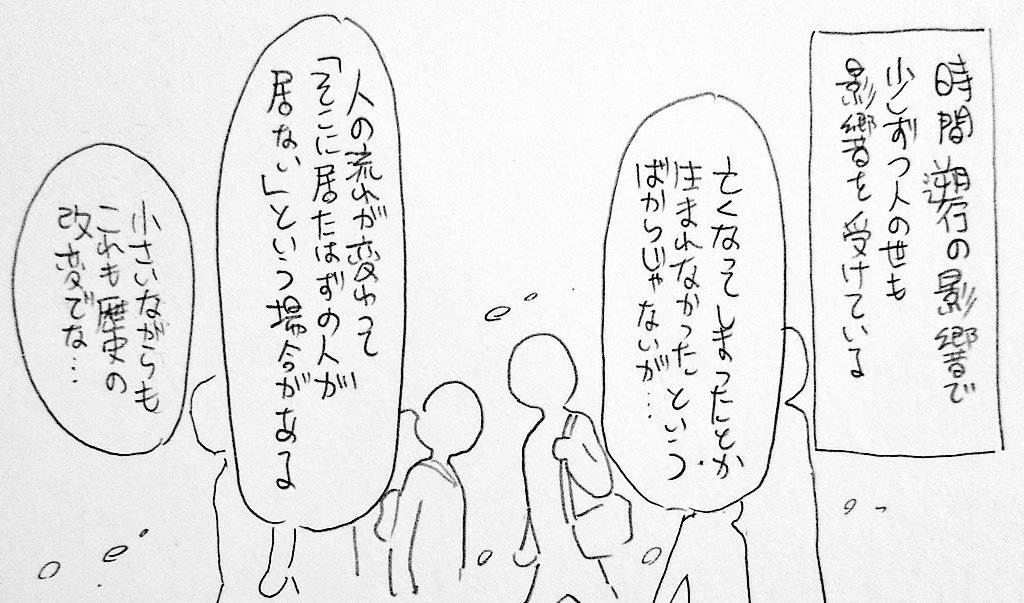 時間遡行の影響で
少しずつ人の世も
影響を受けている
亡くなってしまったとか
生まれなかったという
ばからじゃないが…
人の流れが変わって
「そこに居たはずの人が
居ない」という場合がある
小さいながらも
これも歴史の
改変でな…